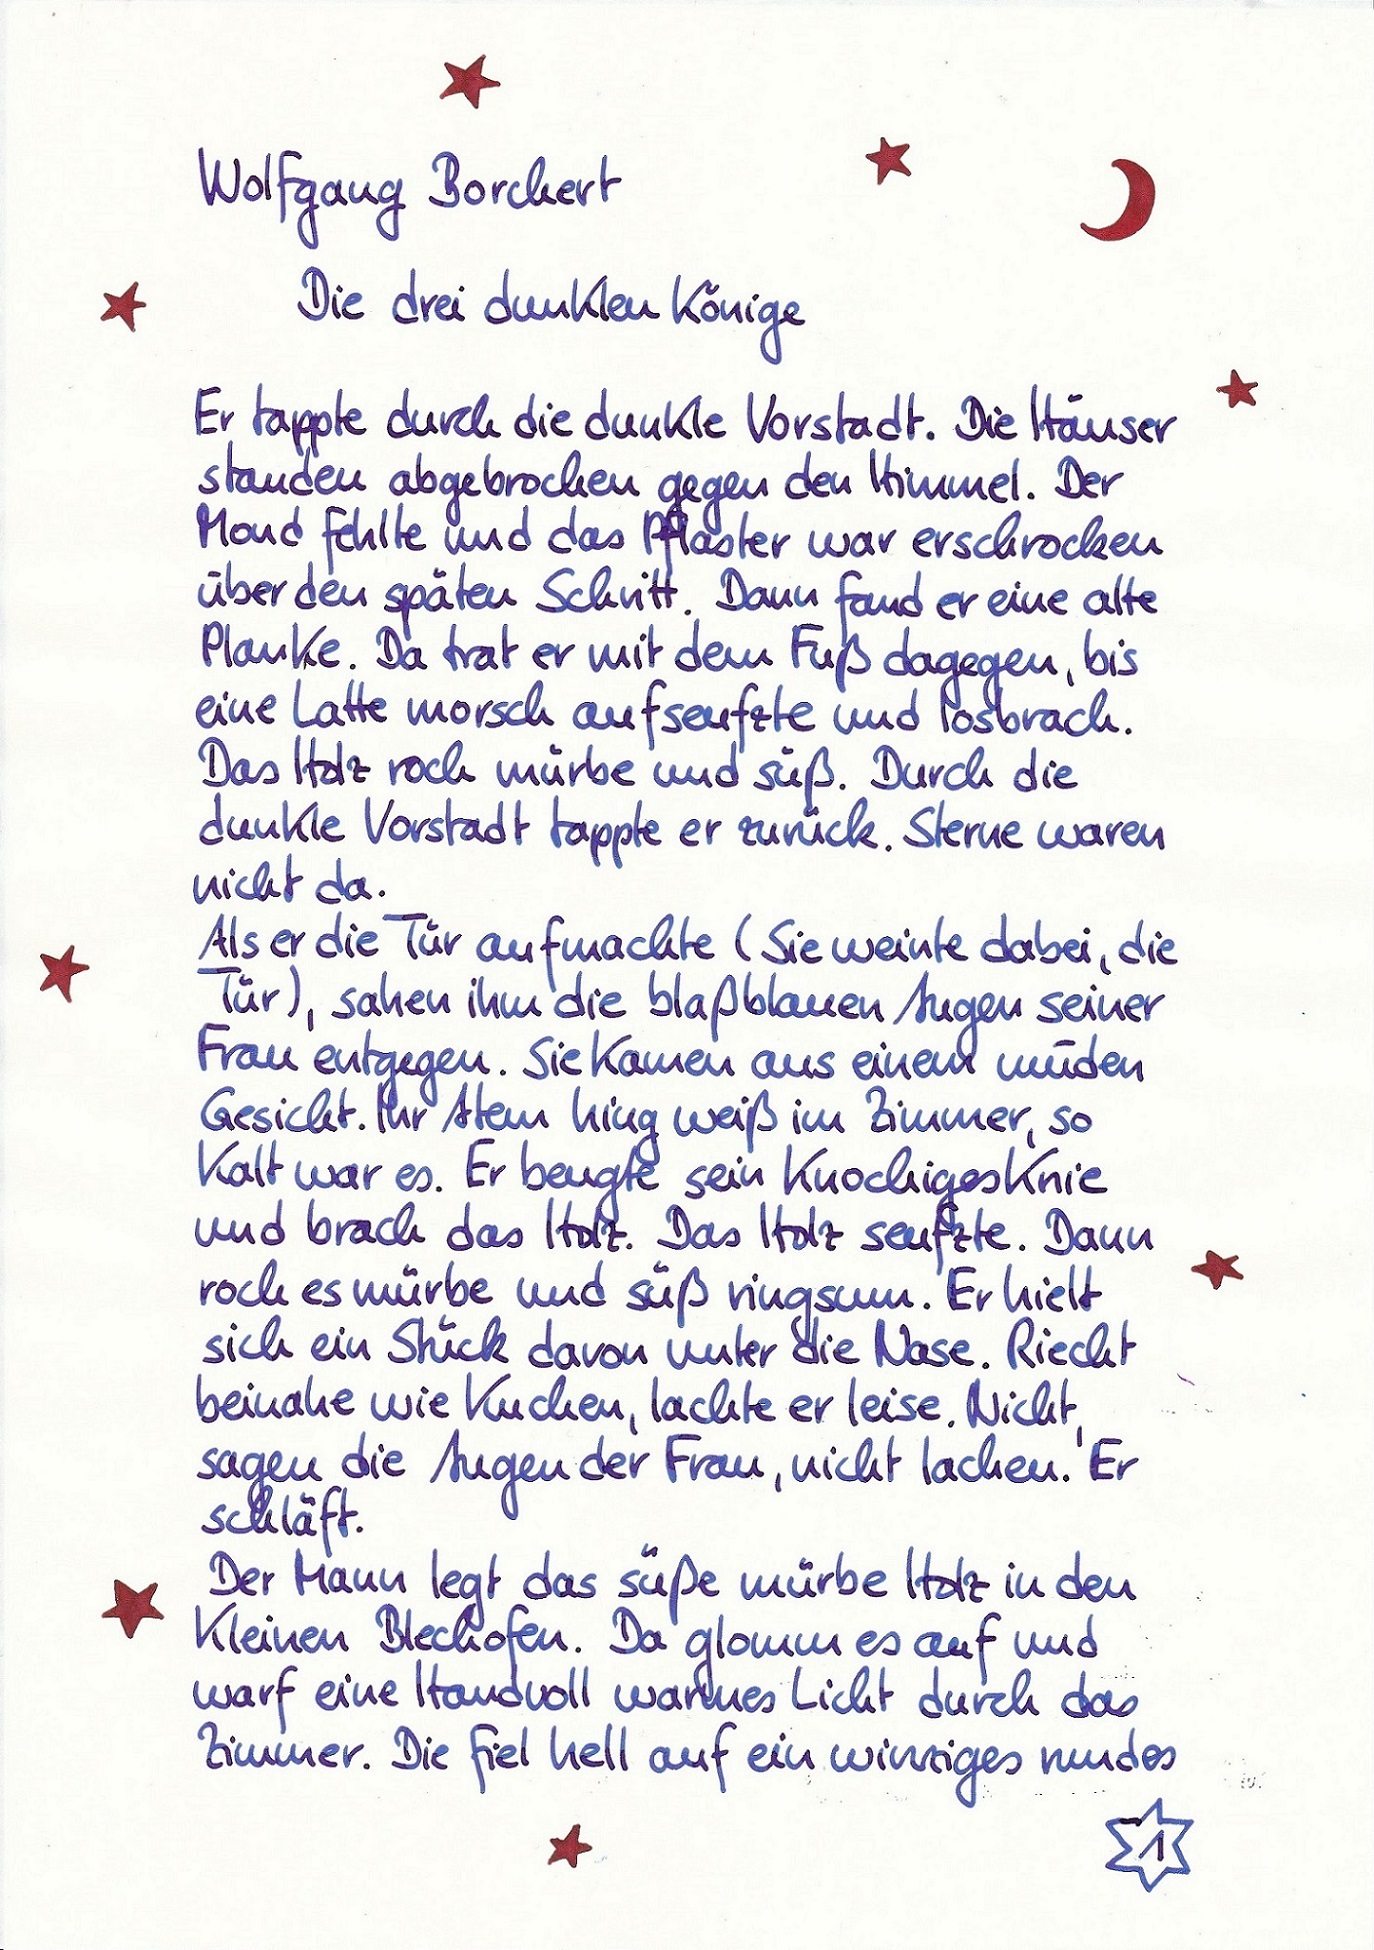 Wolfgang Borchert
Die drei dunklen Könige
Er tappte durch die dunkle Vorstadt. Die Häuser
standen abgebrochen gegen den Himmel. Der
Mond fehlte und das Pflaster war erschrocken
über den späten Schritt. Dann fand er eine alte
Planke. Da trat er mit dem Fuß dagegen, bis
eine Latte morsch aufseufzte und losbrach.
Das Holz roch mürbe und süß. Durch die
dunkle Vorstadt tappte er zurück. Sterne waren
nicht da.
Als er die Tür aufmachte (Sie weinte dabei, die
Tür), sahen ihm die blaßblauen Augen seiner
Frau entgegen. Sie kamen aus einem müden
Gesicht. Ihr Atem hing weiß im Zimmer, so
kalt war es. Er beugte sein knochiges Knie
und brach das Holz. Das Holz seufzte. Dann
roch es mürbe und süß ringsum. Er hielt
sich ein Stück davon unter die Nase. Riecht
beinahe wie Kuchen, lachte er leise. Nicht,
sagen die Augen der Frau, nicht lachen. Er
schläft.
Der Mann legt das süße mürbe Holz in den
kleinen Blechofen. Da glomm es auf und
warf eine Handvoll warmes Licht durch das
Zimmer. Die fiel hell auf ein winziges rundes
1